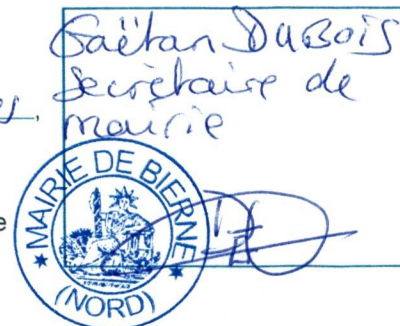 Gaëtan DUBOIS
secrétaire de
mairie
MAIRIE DE BIERNE
(NORD)